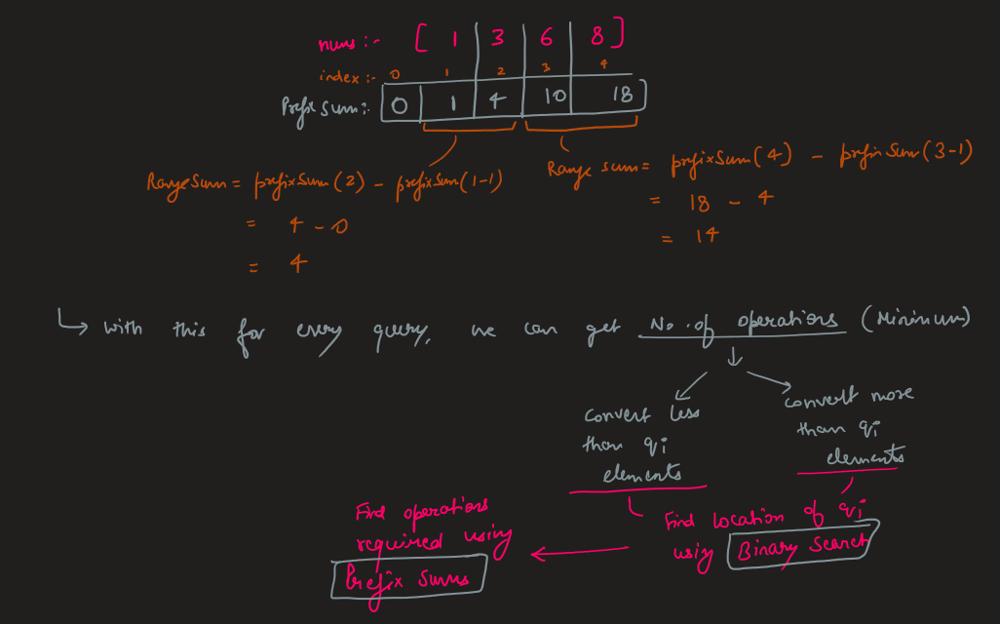 nums :- [ 1 3 6 8 ]
index :- 0 1 2 3 4
Prefix Sum :- 0 1 4 10 18
Range Sum = prefixSum(2) - prefixSum(1-1)
= 4 - 0
= 4
Range Sum = prefixSum(4) - prefixSum(3-1)
= 18 - 4
= 14
↳ With this for every query, we can get No. of operations (Minimum)
Convert less
than qi
elements
Convert more
than qi
elements
Find location of qi
using Binary Search
Find operations
required using
Prefix Sums